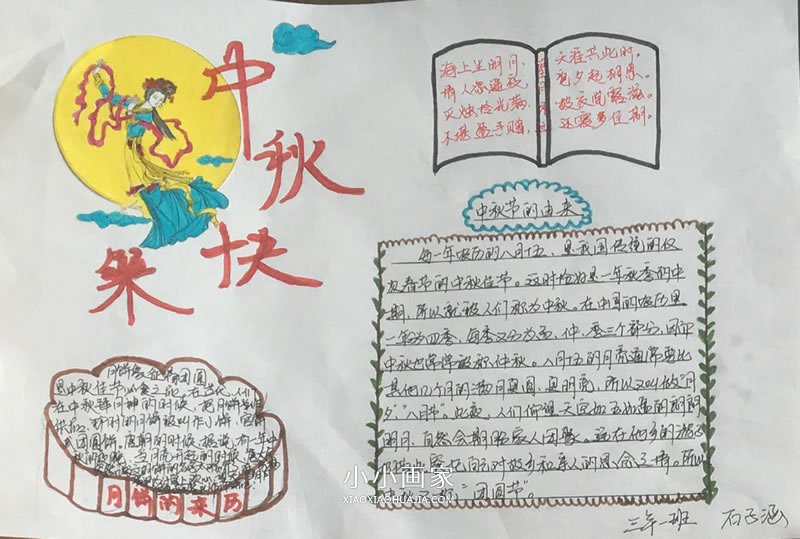 中秋快
乐
海上生明月，
天涯共此时。
情人怨遥夜，
竟夕起相思。
灭烛怜光满，
披衣觉露滋。
不堪盈手赠，
还寝梦佳期。
中秋节的由来
每一年农历的八月十五，是我国传统的仅
次春节的中秋佳节。这时恰好是一年秋季的中
期，所以就被人们称为中秋。在中国的农历里
一年分为四季，每季又分为孟、仲、季三个部分，因而
中秋也常常被称仲秋。八月十五的月亮通常要比
其他几个月的满月更圆，更明亮，所以又叫做“月
夕”，“八月节”。此夜，人们仰望天空如玉如盘的朗朗
明月，自然会期盼家人团聚。远在他乡的游子
对故乡和亲人的思念之情。所以
“团圆节”。
月饼象征着团圆
是中秋佳节必食之品。在古代，人们
在中秋拜月神的时候，把月饼当作
供品，那时的月饼被叫作小饼、宫饼
或团圆饼。唐朝的时候，据说，有一年中
月饼的来历
小小画家
XIAOXIAOHUAJIA.COM
三年一班 石子涵